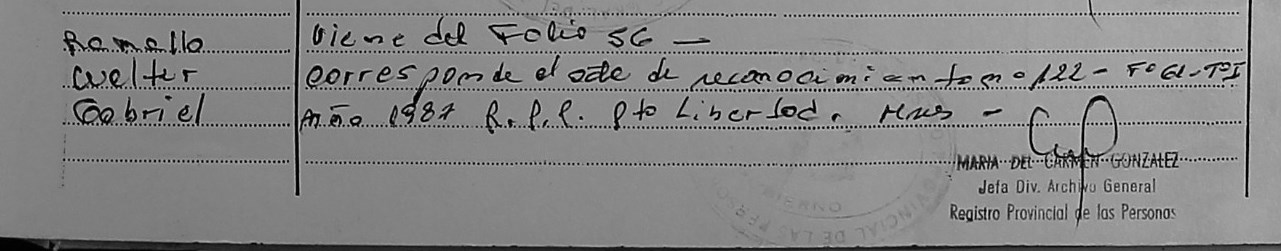 Ramello
Viene del Folio 56 —
Walter
Corresponde el acta de reconocimiento nº 122 - Fº 61 - Tº I
Gabriel
Año 1987 R.P.P. Pto Libertad. Mnes -
MARIA DEL CARMEN GONZALEZ
Jefa Div. Archivo General
Registro Provincial de las Personas